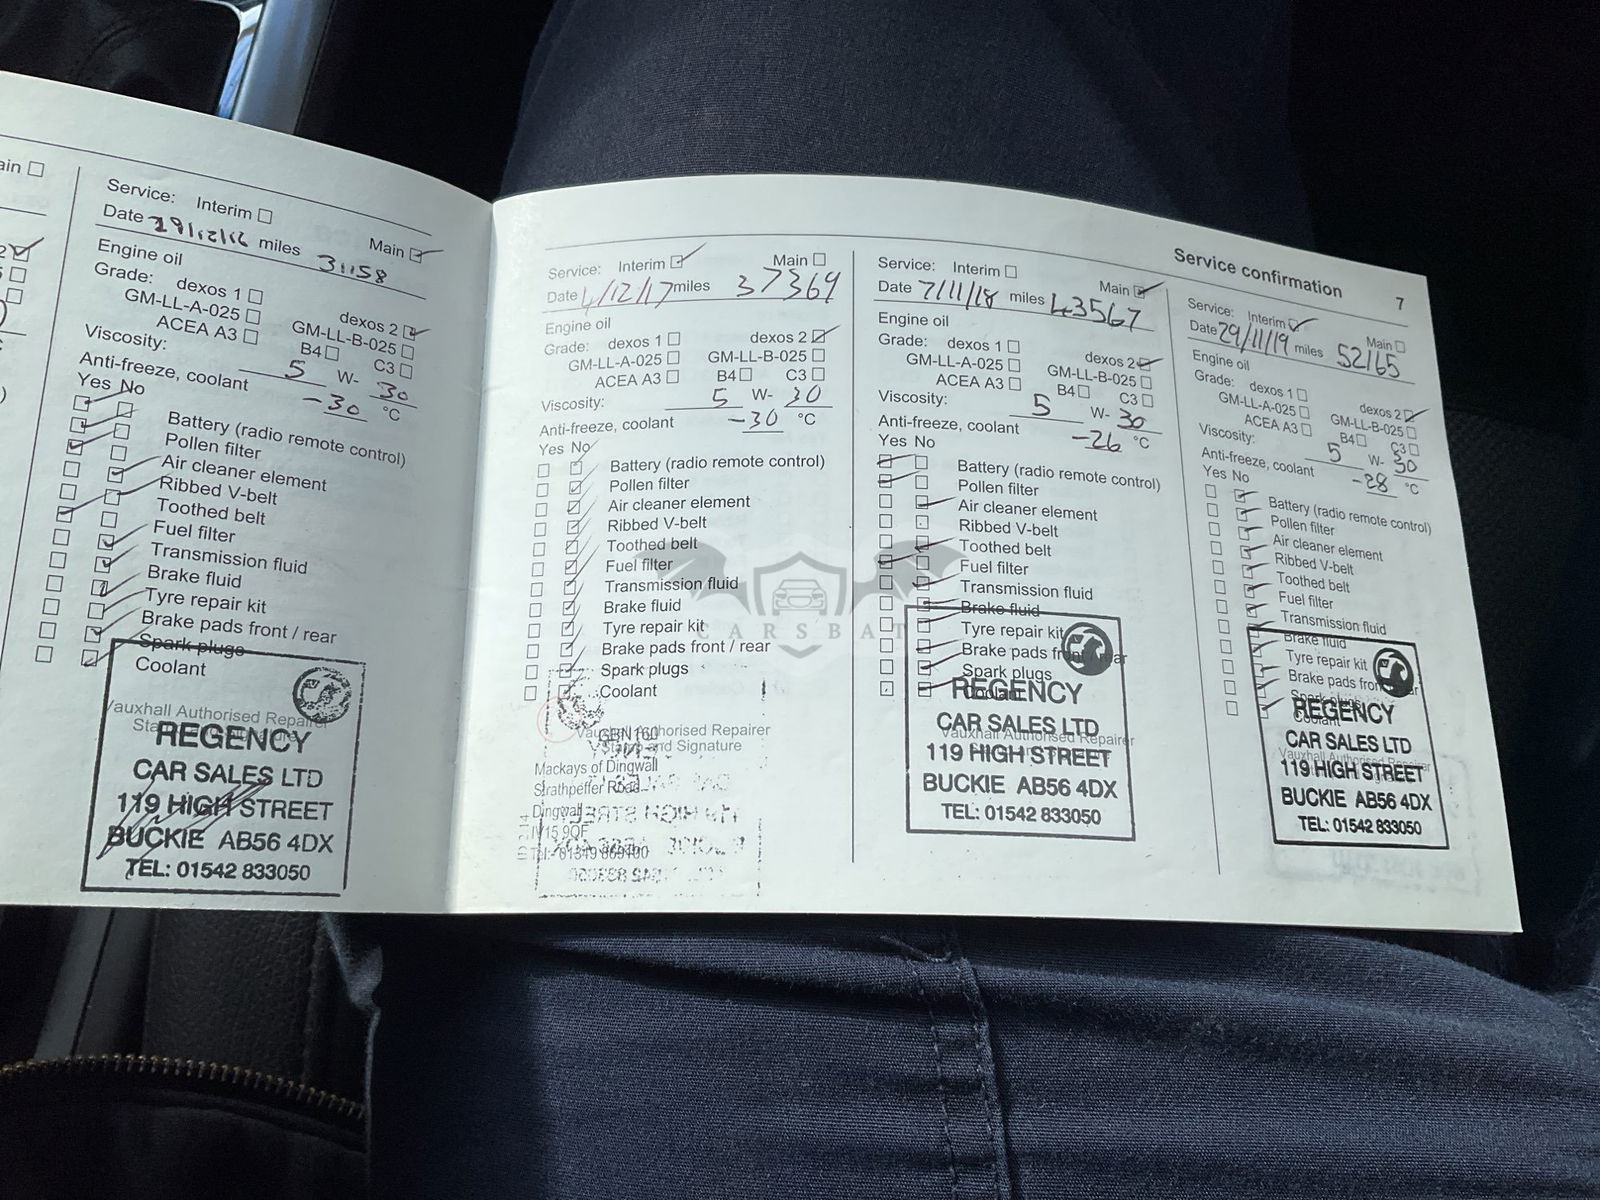 ain
Service: Interim
Main
Date 29/12/16 miles 31158
Engine oil
Grade: dexos 1
dexos 2
GM-LL-A-025
GM-LL-B-025
ACEA A3
B4
C3
Viscosity: 5 W- 30
Anti-freeze, coolant -30 °C
Yes No
Battery (radio remote control)
Pollen filter
Air cleaner element
Ribbed V-belt
Toothed belt
Fuel filter
Transmission fluid
Brake fluid
Tyre repair kit
Brake pads front / rear
Spark plugs
Coolant
Vauxhall Authorised Repairer
REGENCY
CAR SALES LTD
119 HIGH STREET
BUCKIE AB56 4DX
TEL: 01542 833050
Service: Interim
Main
Date 4/12/17 miles 37369
Engine oil
Grade: dexos 1
dexos 2
GM-LL-A-025
GM-LL-B-025
ACEA A3
B4
C3
Viscosity: 5 W- 30
Anti-freeze, coolant -30 °C
Yes No
Battery (radio remote control)
Pollen filter
Air cleaner element
Ribbed V-belt
Toothed belt
Fuel filter
Transmission fluid
Brake fluid
Tyre repair kit
Brake pads front / rear
Spark plugs
Coolant
GBN160
Vauxhall Authorised Repairer
Stamp and Signature
Mackays of Dingwall
Strathpeffer Road
Dingwall
IV15 9QF
Service confirmation 7
Service: Interim
Main
Date 7/11/18 miles 43567
Engine oil
Grade: dexos 1
dexos 2
GM-LL-A-025
GM-LL-B-025
ACEA A3
B4
C3
Viscosity: 5 W- 30
Anti-freeze, coolant -26 °C
Yes No
Battery (radio remote control)
Pollen filter
Air cleaner element
Ribbed V-belt
Toothed belt
Fuel filter
Transmission fluid
Brake fluid
Tyre repair kit
Brake pads front / rear
Spark plugs
Coolant
REGENCY
CAR SALES LTD
Vauxhall Authorised Repairer
119 HIGH STREET
BUCKIE AB56 4DX
TEL: 01542 833050
Service: Interim
Main
Date 29/11/19 miles 52165
Engine oil
Grade: dexos 1
dexos 2
GM-LL-A-025
GM-LL-B-025
ACEA A3
B4
C3
Viscosity: 5 W- 30
Anti-freeze, coolant -28 °C
Yes No
Battery (radio remote control)
Pollen filter
Air cleaner element
Ribbed V-belt
Toothed belt
Fuel filter
Transmission fluid
Brake fluid
Tyre repair kit
Brake pads front / rear
Spark plugs
Coolant
REGENCY
CAR SALES LTD
Vauxhall Authorised Repairer
119 HIGH STREET
BUCKIE AB56 4DX
TEL: 01542 833050
CARSBAT